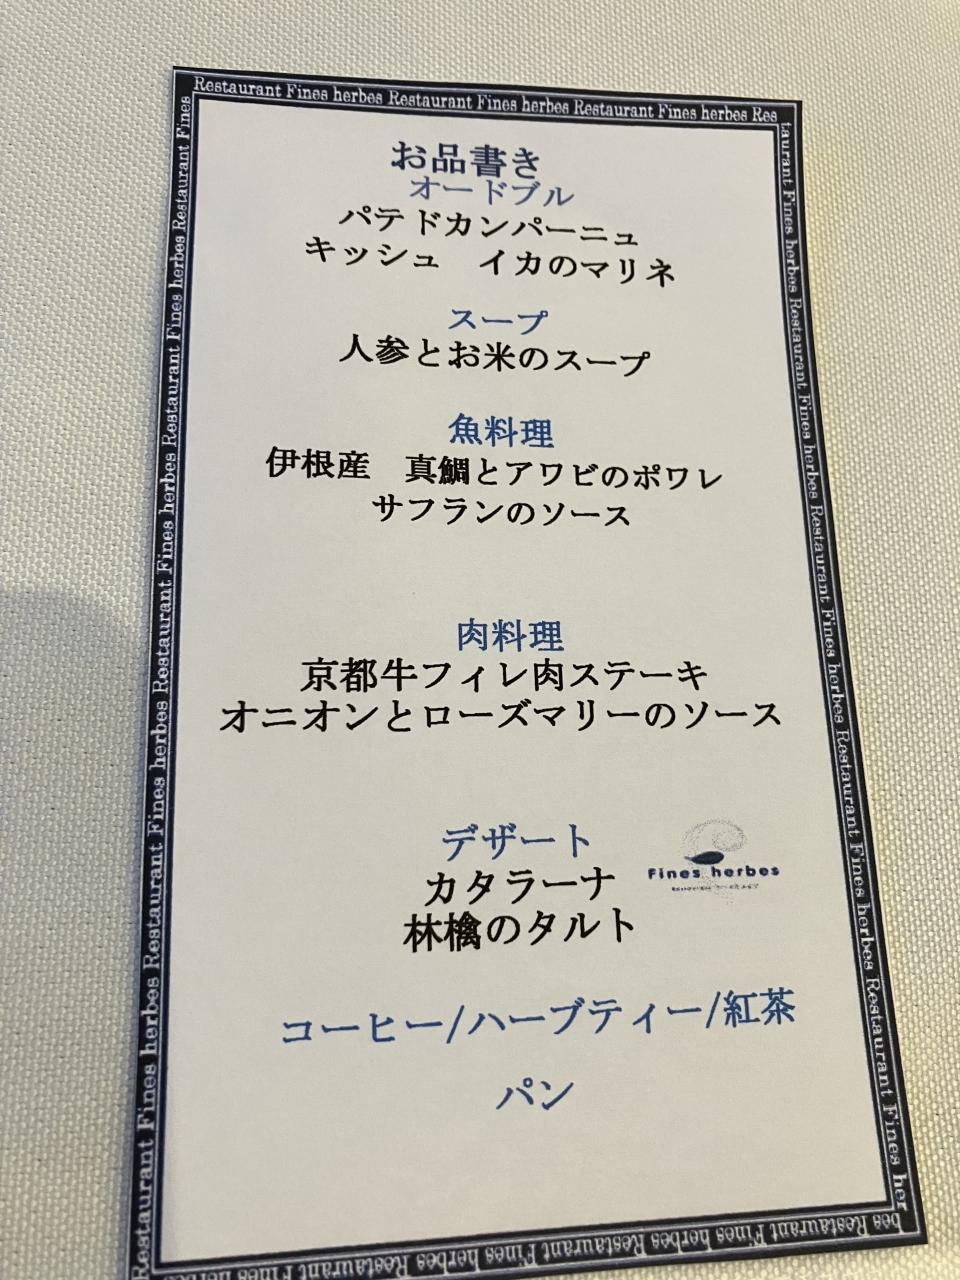 Restaurant Fines herbes Restaurant Fines herbes Restaurant Fines herbes Res
taurant Fines herbes Restaurant Fines herbes Restaurant Fines herbes Restaurant Fines herbes Restaurant Fines her
bes Restaurant Fines herbes Restaurant Fines herbes Restaurant Fines herbes
Restaurant Fines herbes Restaurant Fines herbes Restaurant Fines herbes Restaurant Fines herbes Restaurant Fines
お品書き
オードブル
パテドカンパーニュ
キッシュ　イカのマリネ
スープ
人参とお米のスープ
魚料理
伊根産　真鯛とアワビのポワレ
サフランのソース
肉料理
京都牛フィレ肉ステーキ
オニオンとローズマリーのソース
デザート
カタラーナ
Fines herbes
林檎のタルト
コーヒー/ハーブティー/紅茶
パン